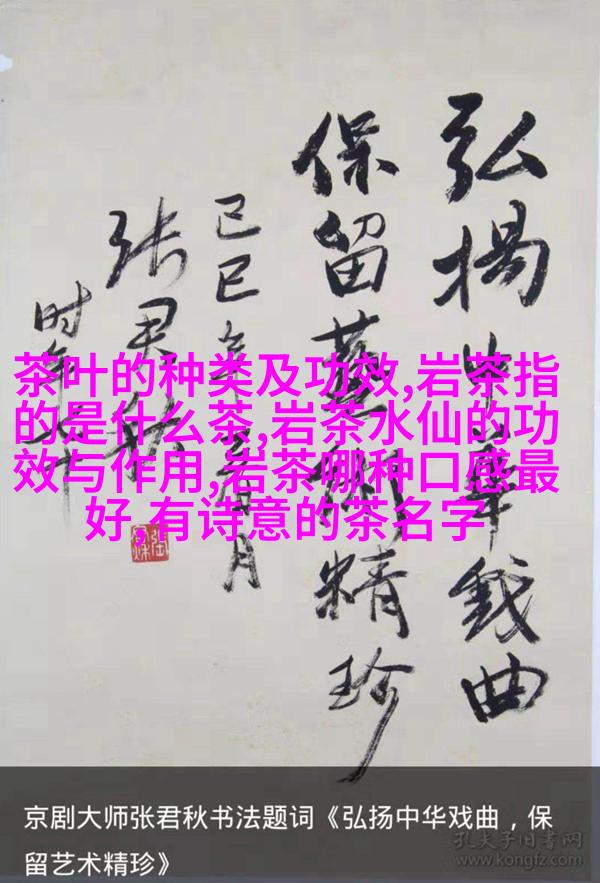 弘揚中華戲曲
保留藝術精珍
己巳年春月
张君秋
时年
茶叶的种类及功效,岩茶指
的是什么茶,岩茶水仙的功
效与作用,岩茶哪种口感最
好,有诗意的茶名字
京剧大师张君秋书法题词《弘扬中华戏曲，保
留艺术精珍》
孔夫子旧书网
www.kongfz.com